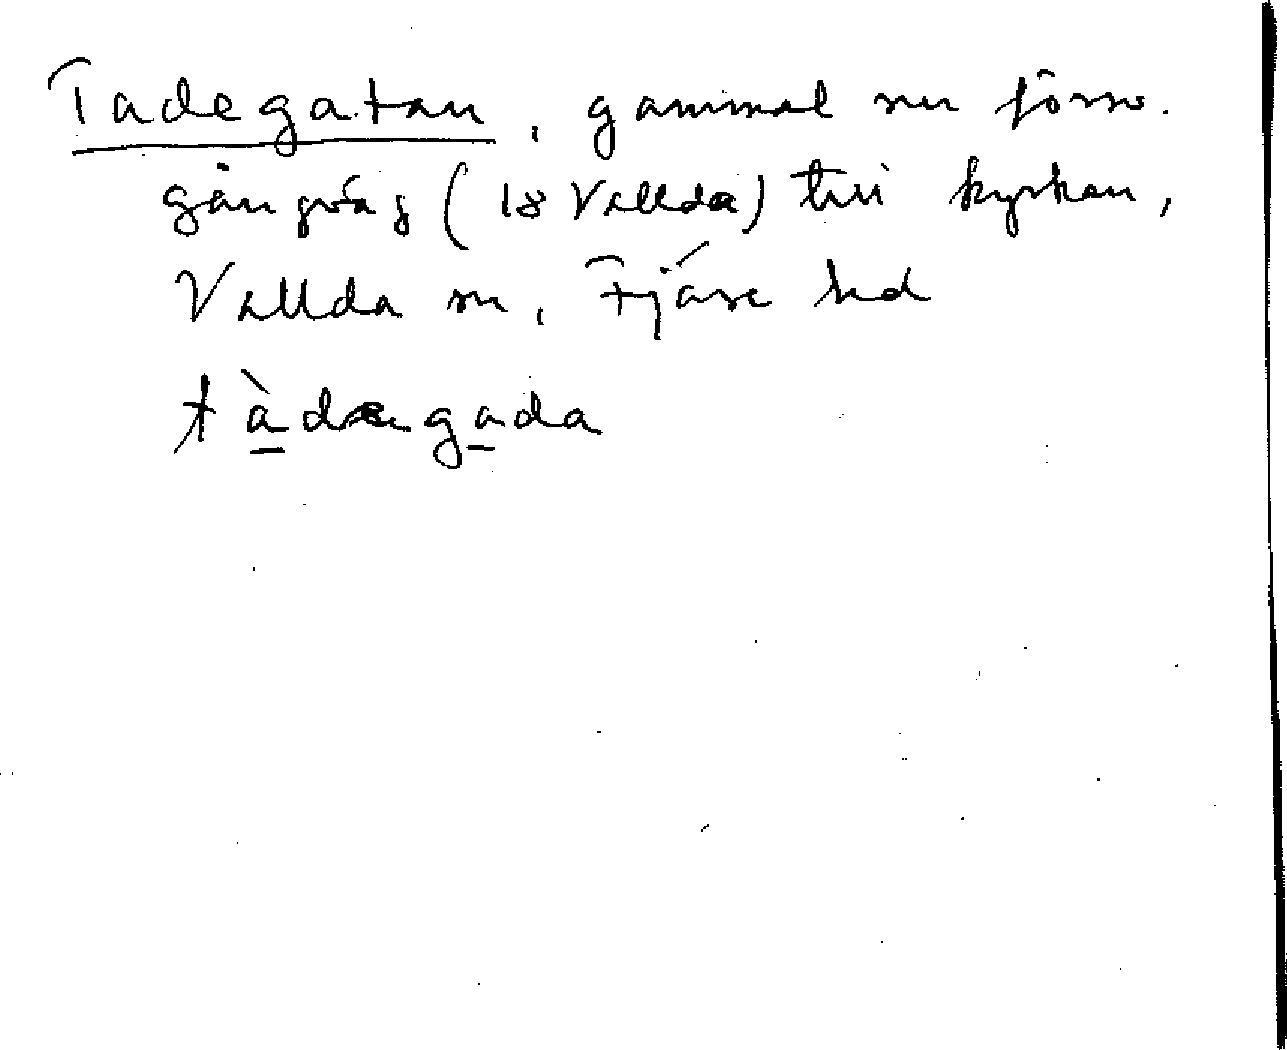 Tadegatan, gammal nu försv.
gångväg (18 Vallda) till kyrkan,
Vallda sn, Fjäre hd
tàdəgada